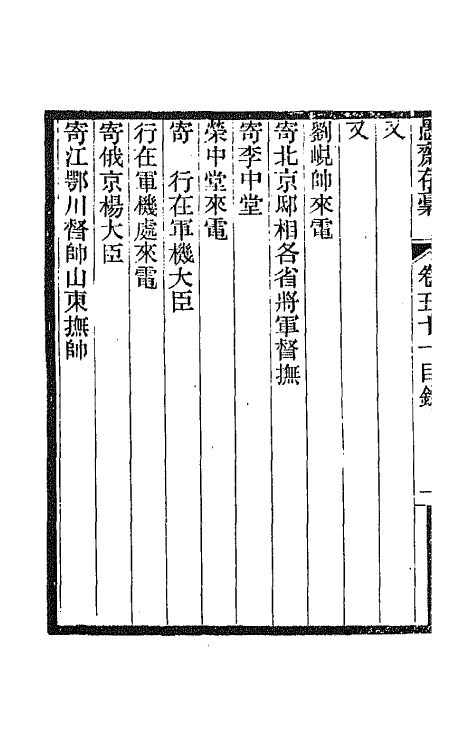 愚齋存稾
卷五十一目錄
一
又
又
劉峴帥來電
寄北京邸相各省將軍督撫
寄李中堂
榮中堂來電
寄　行在軍機大臣
行在軍機處來電
寄俄京楊大臣
寄江鄂川督帥山東撫帥